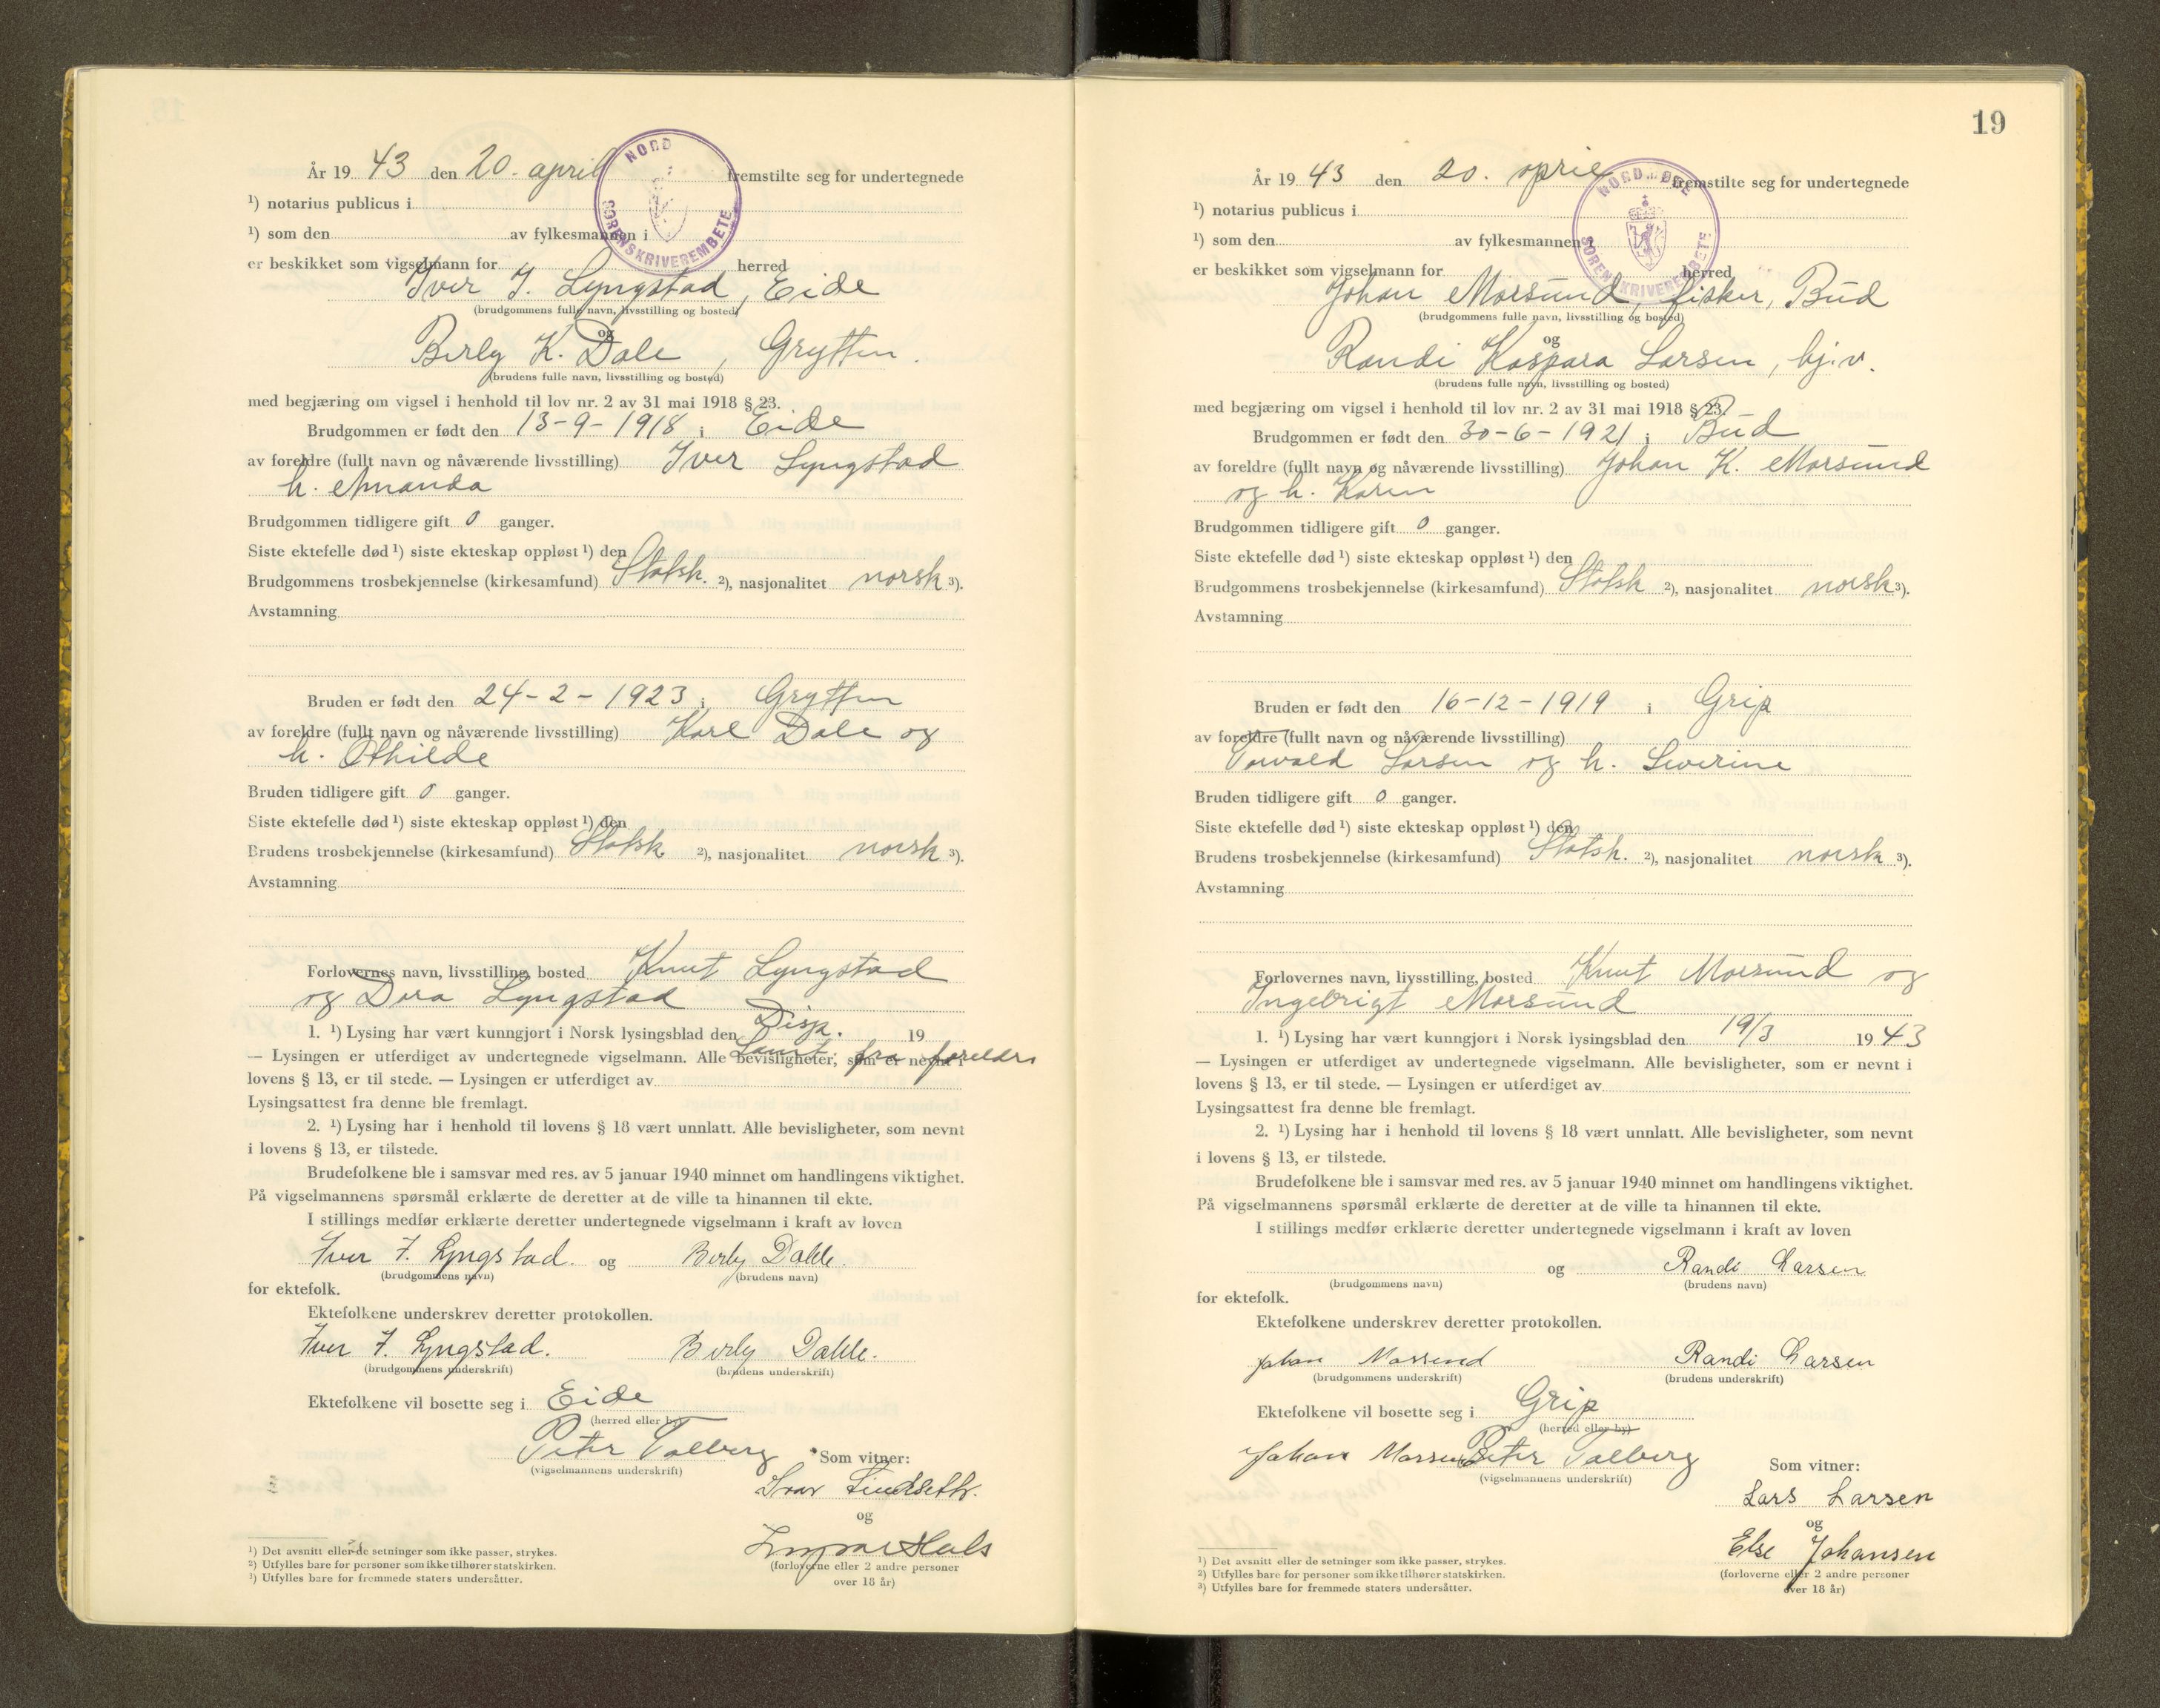 År 19 43 den 20. april fremstilte seg for undertegnede
NORD
SORENSKRIVEREMBETE
¹) notarius publicus i
¹) som den av fylkesmannen i
er beskikket som vigselmann for herred
Iver J. Lyngstad, Eide
(brudgommens fulle navn, livsstilling og bosted)
og
Berly K. Dale, Grytten.
(brudens fulle navn, livsstilling og bosted)
med begjæring om vigsel i henhold til lov nr. 2 av 31 mai 1918 § 23.
Brudgommen er født den 13-9-1918 i Eide
av foreldre (fullt navn og nåværende livsstilling) Iver Lyngstad
h. Amanda
Brudgommen tidligere gift 0 ganger.
Siste ektefelle død ¹) siste ekteskap oppløst ¹) den
Brudgommens trosbekjennelse (kirkesamfund) Statsk. ²), nasjonalitet norsk ³).
Avstamning
Bruden er født den 24-2-1923 i Grytten
av foreldre (fullt navn og nåværende livsstilling) Karl Dale og
h. Othilde
Bruden tidligere gift 0 ganger.
Siste ektefelle død ¹) siste ekteskap oppløst ¹) den
Brudens trosbekjennelse (kirkesamfund) Statsk ²), nasjonalitet norsk ³).
Avstamning
Forlovernes navn, livsstilling, bosted Knut Lyngstad
og Dora Lyngstad
1. ¹) Lysing har vært kunngjort i Norsk lysingsblad den Disp. 19
— Lysingen er utferdiget av undertegnede vigselmann. Alle bevisligheter, som er nevnt i
Samt. fra foreldre
lovens § 13, er til stede. — Lysingen er utferdiget av
Lysingsattest fra denne ble fremlagt.
2. ¹) Lysing har i henhold til lovens § 18 vært unnlatt. Alle bevisligheter, som nevnt
i lovens § 13, er tilstede.
Brudefolkene ble i samsvar med res. av 5 januar 1940 minnet om handlingens viktighet.
På vigselmannens spørsmål erklærte de deretter at de ville ta hinannen til ekte.
I stillings medfør erklærte deretter undertegnede vigselmann i kraft av loven
Iver J. Lyngstad. og Berly Dahle.
(brudgommens navn) (brudens navn)
for ektefolk.
Ektefolkene underskrev deretter protokollen.
Iver J. Lyngstad. Berly Dahle.
(brudgommens underskrift) (brudens underskrift)
Ektefolkene vil bosette seg i Eide
(herred eller by)
Peter Tolberg
(vigselmannens underskrift)
Som vitner:
Ivar Lindseth.
og
Ingvar Hals
(forloverne eller 2 andre personer
over 18 år)
¹) Det avsnitt eller de setninger som ikke passer, strykes.
²) Utfylles bare for personer som ikke tilhører statskirken.
³) Utfylles bare for fremmede staters undersåtter.
19
År 19 43 den 20. april fremstilte seg for undertegnede
NORDMØRE
SORENSKRIVEREMBETE
¹) notarius publicus i
¹) som den av fylkesmannen i
er beskikket som vigselmann for herred
Johan Morsund, fisker, Bud
(brudgommens fulle navn, livsstilling og bosted)
og
Randi Kaspara Larsen, hj.v.
(brudens fulle navn, livsstilling og bosted)
med begjæring om vigsel i henhold til lov nr. 2 av 31 mai 1918 § 23.
Brudgommen er født den 30-6-1921 i Bud
av foreldre (fullt navn og nåværende livsstilling) Johan K. Morsund
og h. Karen
Brudgommen tidligere gift 0 ganger.
Siste ektefelle død ¹) siste ekteskap oppløst ¹) den
Brudgommens trosbekjennelse (kirkesamfund) Statsk ²), nasjonalitet norsk ³).
Avstamning
Bruden er født den 16-12-1919 i Grip
av foreldre (fullt navn og nåværende livsstilling)
Torvald Larsen og h. Severine
Bruden tidligere gift 0 ganger.
Siste ektefelle død ¹) siste ekteskap oppløst ¹) den
Brudens trosbekjennelse (kirkesamfund) Statsk. ²), nasjonalitet norsk ³).
Avstamning
Forlovernes navn, livsstilling, bosted Knut Morsund og
Ingebrigt Morsund
1. ¹) Lysing har vært kunngjort i Norsk lysingsblad den 19/3 19 43
— Lysingen er utferdiget av undertegnede vigselmann. Alle bevisligheter, som er nevnt i
lovens § 13, er til stede. — Lysingen er utferdiget av
Lysingsattest fra denne ble fremlagt.
2. ¹) Lysing har i henhold til lovens § 18 vært unnlatt. Alle bevisligheter, som nevnt
i lovens § 13, er tilstede.
Brudefolkene ble i samsvar med res. av 5 januar 1940 minnet om handlingens viktighet.
På vigselmannens spørsmål erklærte de deretter at de ville ta hinannen til ekte.
I stillings medfør erklærte deretter undertegnede vigselmann i kraft av loven
og Randi Larsen
(brudgommens navn) (brudens navn)
for ektefolk.
Ektefolkene underskrev deretter protokollen.
Johan Morsund Randi Larsen
(brudgommens underskrift) (brudens underskrift)
Ektefolkene vil bosette seg i Grip
(herred eller by)
Johan Morsund Peter Tolberg
(vigselmannens underskrift)
Som vitner:
Lars Larsen
og
Else Johansen
(forloverne eller 2 andre personer
over 18 år)
¹) Det avsnitt eller de setninger som ikke passer, strykes.
²) Utfylles bare for personer som ikke tilhører statskirken.
³) Utfylles bare for fremmede staters undersåtter.